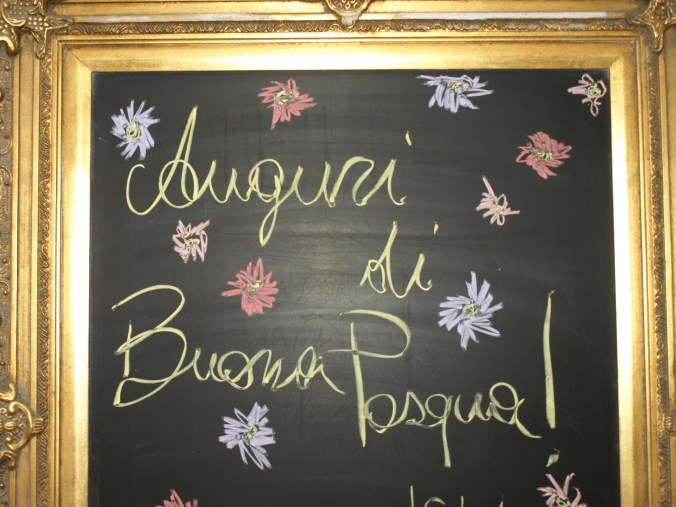 Auguri
di
Buona Pasqua!